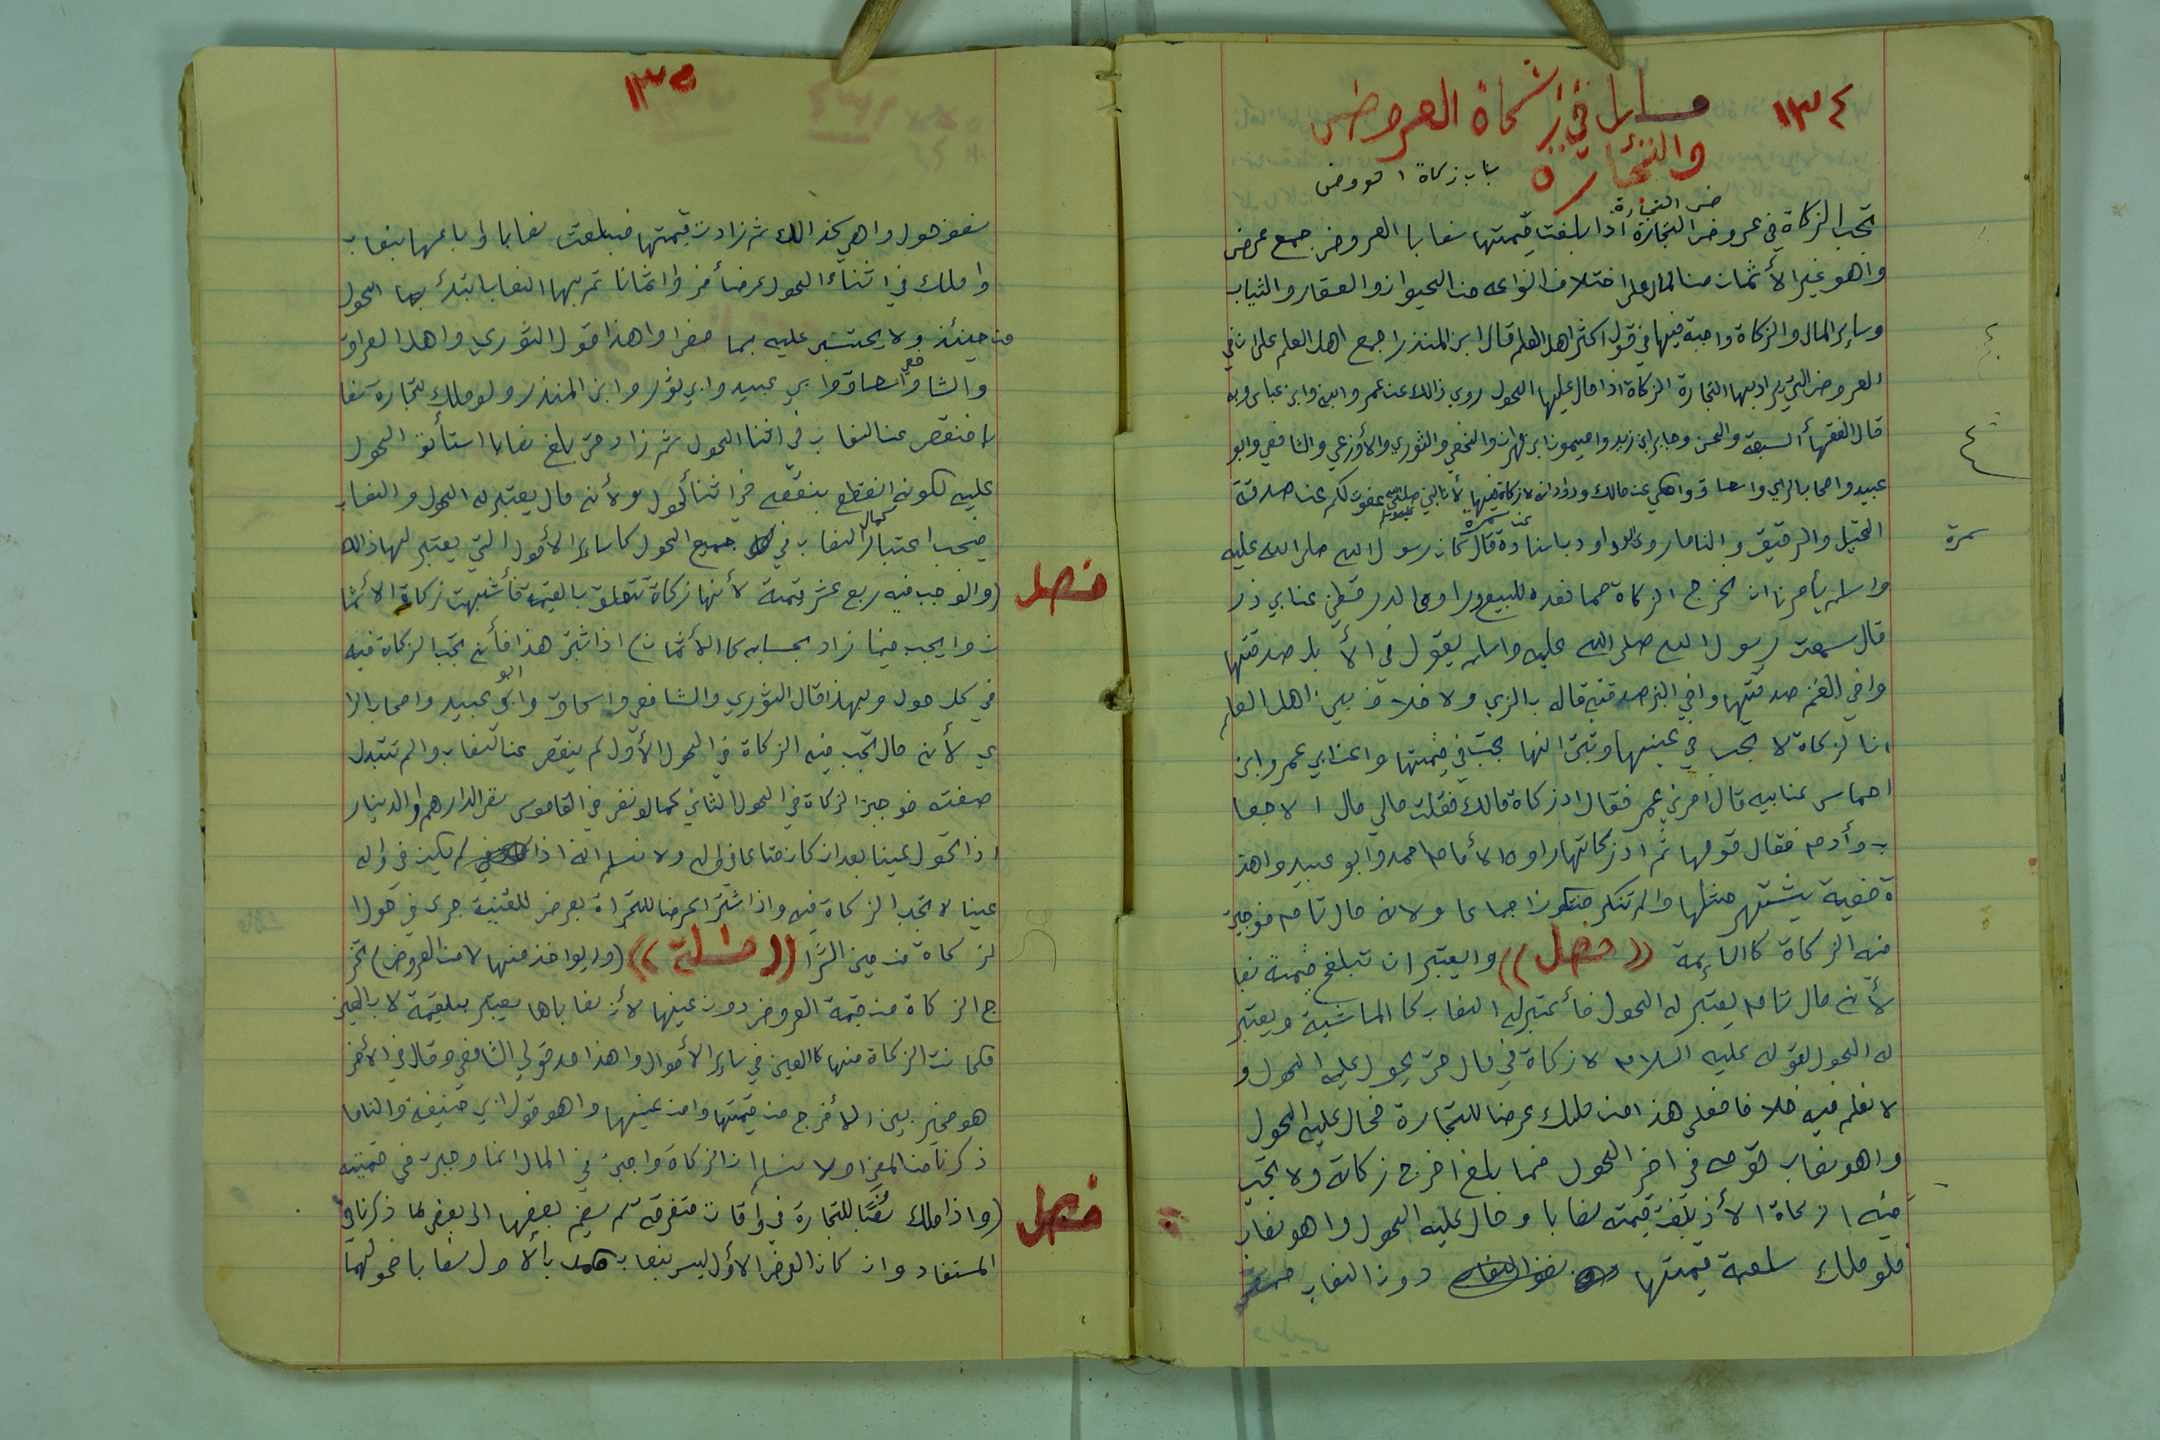 ١٣٤
مسايل في زكاة العروض
والتجارة
باب زكاة العروض
تجب الزكاة في عروض التجارة اذا بلغت قيمتها نصابا العروض جمع عرض
واهو غير الأثمان من المال على اختلاف انواعه من الحيوان والعقار والثياب
وساير المال والزكاة واجبة فيها في قول اكثر اهل العلم قال ابن المنذر اجمع اهل العلم على ان في
العروض التي يراد بها التجارة الزكاة اذا حال عليها الحول روي ذالك عن عمر وابنه وابن عباس وبه
قال الفقهأ السبعة والحسن وجابر ابن زيد واميمون ابن مهران والنخعي والثوري والأوزعي والشافعي وابو
عبيد واصحابالراي واسحاق واحكي عن مالك وداود انه لا زكاة فيها لأنالنبي صلى الله عليه وسلم عفوت لكم عن صدقة
سمرة
الخيل والرقيق والناما روى ابو داود باسناده عن سمرة قال كان رسول الله صلى الله عليه
واسلم يأمرنا ان نخرج الزكاة مما نعده للبيع وراوى الدرقطني عن ابي ذر
قال سمعت رسول الله صلى الله عليه واسلم يقول في الأبل صدقتها
وافي الغنم صدقتها وافي البز صدقته قاله بالزي ولا خلاف بين اهل العلم
انالزكاة لا تجب في عينها وثبت انها تجب في قيمتها واعن ابي عمر وابن
احماس عن ابيه قال امرني عمر فقال اد زكاة مالك فقلت مالي مال الا جعا
ب وأدم فقال قومها ثم اد زكاتها راوه الأمام احمد وابو عبيد واهذ
ة قضية يشتهر مثلها والم تنكر فتكون اجماعا ولانه مال نام فوجبت
فيه الزكاة كاالسايمة (( فصل )) وايعتبر ان تبلغ قيمته نصا
لأنه مال نام يعتبر له الحول فأعتبر له النصاب كا الماشية ويعتبر
له الحول لقوله عليه السلام لا زكاة في مال حتى يحول عليه الحول و
لا نعلم فيه خلافا فعلى هذا من ملك عرضا للتجارة فحال عليه الحول
واهو نصاب قومه في اخر الحول فما بلغ اخرج زكاته ولا تجب
فيه الزكاة الأ اذ بلغت قيمته نصابا وحال عليه الحول واهو نصاب
فلو ملك سلعة قيمتها دون النصاب فمضى
١٣٥
نصف حول واهي كذالك ثم زادت قيمتها فبلغت نصابا وا باعها بنصاب
وا ملك في اثناء الحول عرضا أخر وا اثمانا تم بها النصاب ابتدئ بها الحول
من حينئذ ولا يحتسب عليه بما مضى واهذا قول الثوري واهل العراق
والشافعي واسحاق وابي عبيد وابي ثور وابن المنذر ولو ملك للتجارة نصا
با فنقص عن النصاب في اثنا الحول ثم زاد حتى بلغ نصابا استأنف الحول
عليه لكونه انقطع بنقصه في اثنا الحول ولأنه مال يعتبر له الحول والنصاب
فيجب اعتبار كمال النصاب في جميع الحول كاساير الأمول التي يعتبر لها ذالك
فصل
(والوجب فيه ربع عشر قيمته لأنها زكاة تتعلق بالقيمة فأشبهت زكاة الأثما
ن وايجب فيما زاد بحسابه كا الأثمان) اذا ثبت هذا فأنه تجب الزكاة فيه
في كل حول وبهذا قال الثوري والشافعي واسحاق وابو عبيد واصحابالرا
ي لأنه مال تجب فيه الزكاة في الحول الأول لم ينقص عن النصاب والم تتبدل
صفته فوجبت الزكاة في الحول الثاني كما لو نض في القاموس نض الدراهم والدينار
اذا تحول عينا بعد ان كان متاعا في الحول ولا نسلم انه اذا لم يكن في اوله
عينا لا تجب الزكاة فيه واذا شترا عرضا للتجراة بعرض للقنية جرى في حول ا
لزكاة من حين الشرا (( مسألة )) (وايواخذ منها لا من العروض) تخر
ج الزكاة من قيمة العروض دون عينها لأن نصاباها يعتبر بلقيمة لا بالعين
فكانت الزكاة منها كا العين في ساير الأموال واهذا احد قولي الشافعي وقال في الأخر
هو مخير بين الأخرج من قيمتها وامن عينها واهو قول ابي حنيفة والناما
ذكرنا من المعنى ولا نسلم ان الزكاة واجبت في المال انما وجبت في قيمته
فصل
(واذا ملك نصبًا للتجارة في اوقات متفرقة لم يضم بعضها الى بعض لما ذكرنا في
المستفاد وان كان العرض الأول ليس بنصاب وكمل بالأول نصابا فحولهما